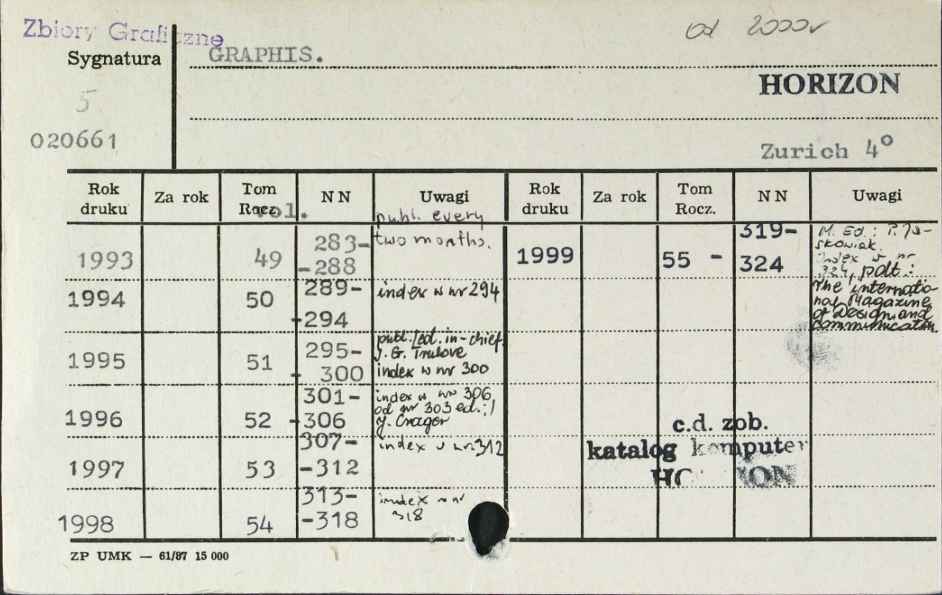 Zbiory Graficzne
od 2000r
Sygnatura
GRAPHIS.
HORIZON
5
020661
Zurich 4°
Rok druku Za rok Tom Rocz. vol. N N Uwagi Rok druku Za rok Tom Rocz. N N Uwagi
publ. every
two months.
1993 49 283-
-288
1994 50 289-
-294
index w nr 294
1995 51 295-
- 300
publ./ed. in-chief
J. G. Trulove
index w nr 300
1996 52 301-
-306
index w nr 306
od nr 303 ed.:
J. Crager
1997 53 307-
-312
index w nr 312
1998 54 313-
-318
index w nr
318
1999 55 - 319-
324
M. Ed.: P.
index w nr
324, pdt:
The internatio-
nal Magazine
of Design and
Communication
c.d. zob.
katalog komputer
HORIZON
ZP UMK — 61/87 15 000